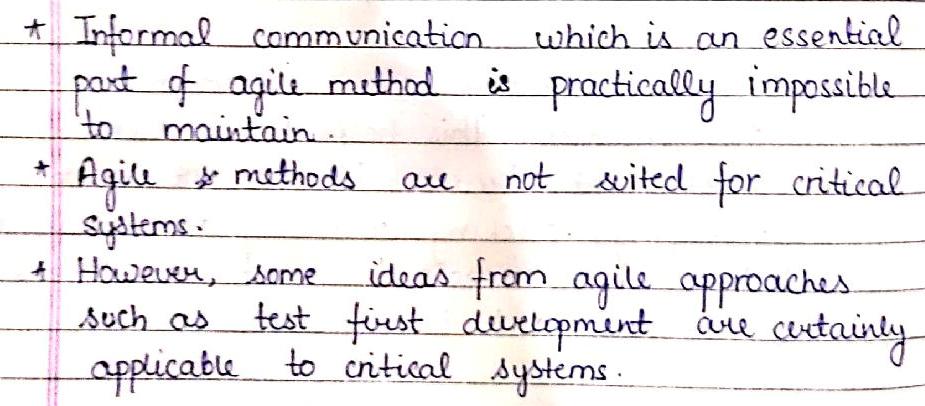 * Informal communication which is an essential
part of agile method is practically impossible
to maintain.
* Agile methods are not suited for critical
systems.
* However, some ideas from agile approaches
such as test first development are certainly
applicable to critical systems.